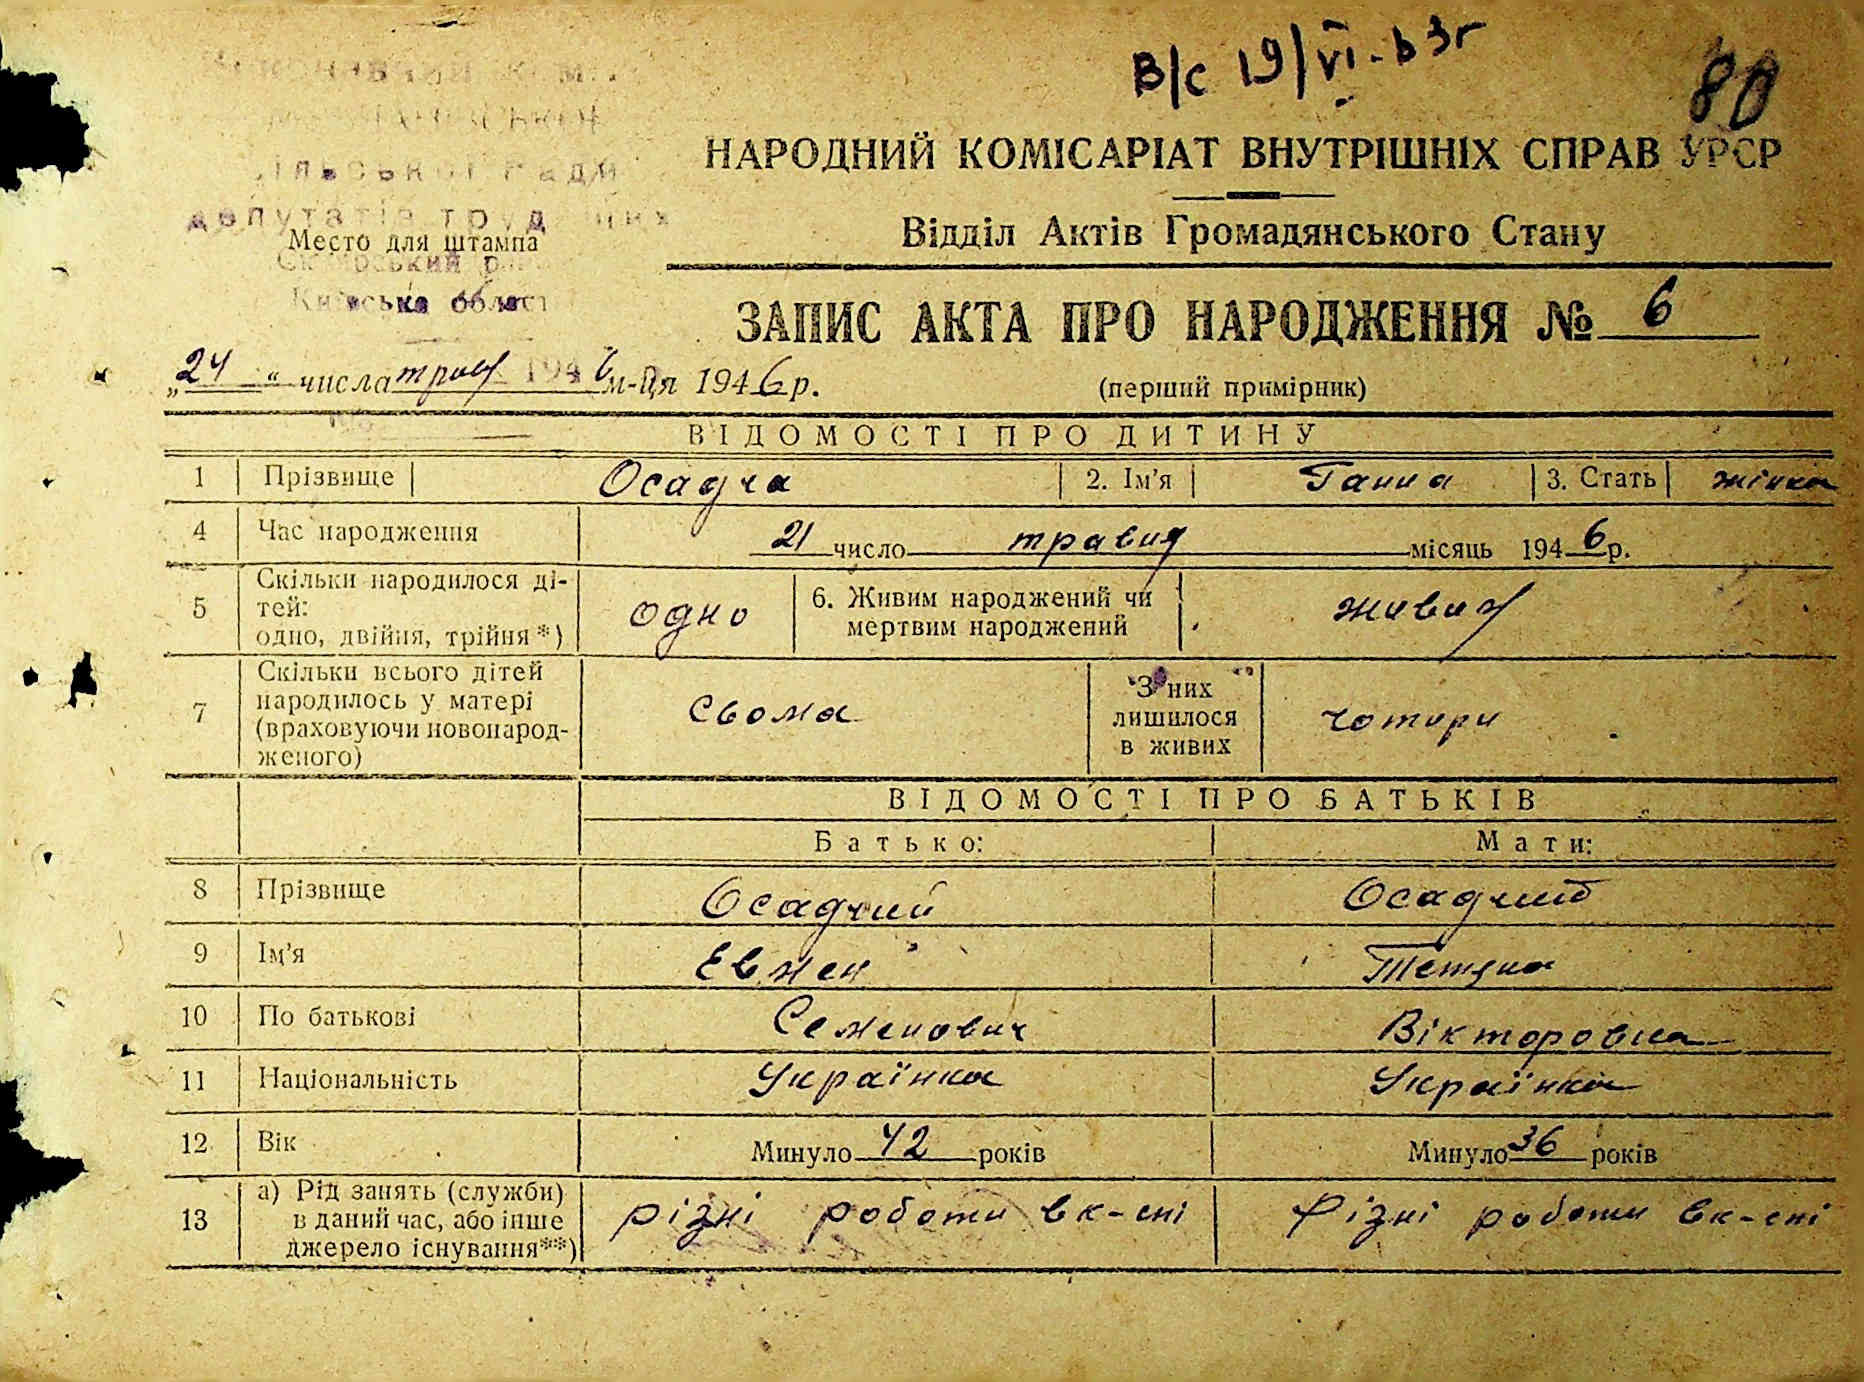 В/с 19/VI-63г
80
НАРОДНИЙ КОМІСАРІАТ ВНУТРІШНІХ СПРАВ УРСР
депутатів труд
Место для штампа
Відділ Актів Громадянського Стану
Київська област
ЗАПИС АКТА ПРО НАРОДЖЕННЯ № 6
„24“ числа трав м-ця 1946 р.
(перший примірник)
ВІДОМОСТІ ПРО ДИТИНУ
1 Прізвище Осадча 2. Ім'я Ганна 3. Стать жінка
4 Час народження 21 число травня місяць 1946 р.
5 Скільки народилося ді-
тей:
одно, двійня, трійня*) одно 6. Живим народжений чи
мертвим народжений живим
7 Скільки всього дітей
народилось у матері
(враховуючи новонарод-
женого) Сьома З них
лишилося
в живих чотири
ВІДОМОСТІ ПРО БАТЬКІВ
Батько: Мати:
8 Прізвище Осадчий Осадчий
9 Ім'я Евжен Тетяна
10 По батькові Семенович Вікторовна
11 Національність Українка Українка
12 Вік Минуло 42 років Минуло 36 років
13 а) Рід занять (служби)
в даний час, або інше
джерело існування**) різні роботи в к-спі Різні роботи в к-спі